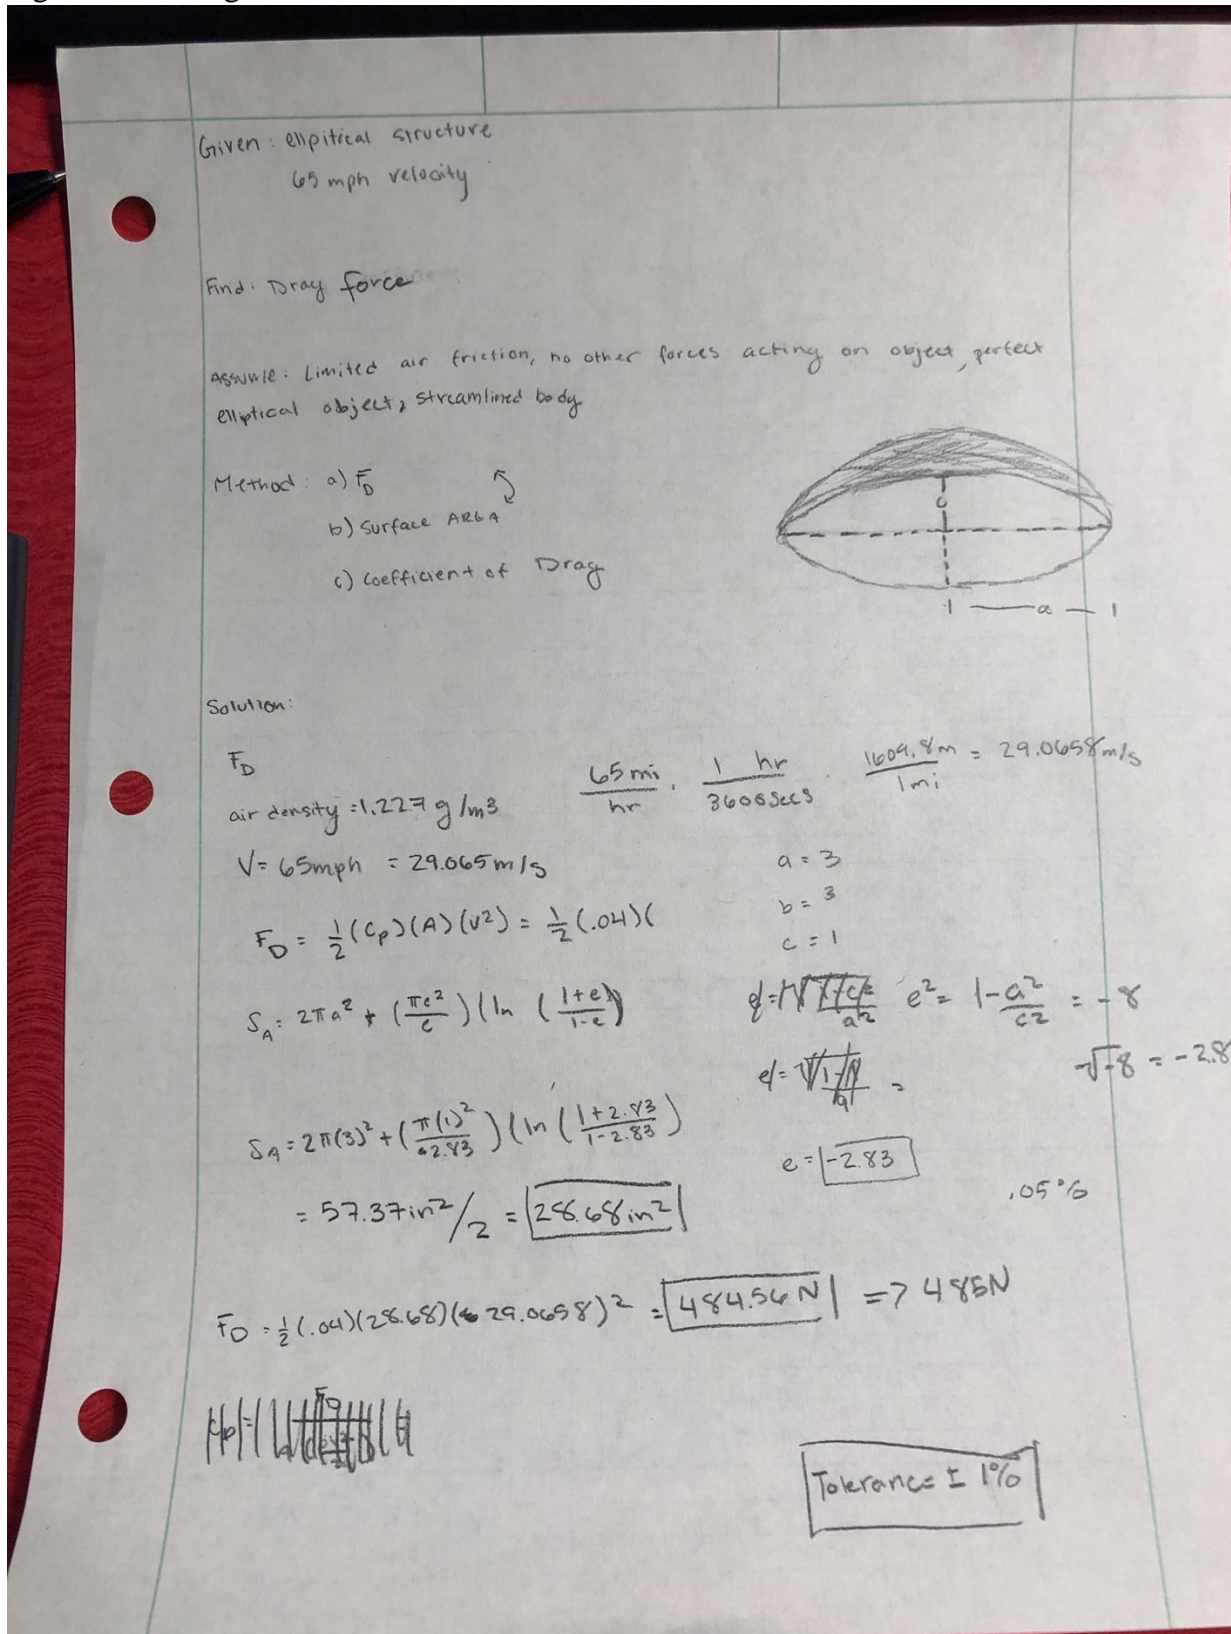 Given: ellpitical structure
65 mph velocity
Find: Drag force
Assume: Limited air friction, no other forces acting on object, perfect
elliptical object, streamlined body
Method: a) F_D
b) Surface AREA
c) Coefficient of Drag
c
a
Solution:
F_D
65 mi/hr · 1 hr/3600 secs · 1609.8m/1mi = 29.0658 m/s
air density = 1.227 g/m3
V = 65mph = 29.065 m/s
a = 3
b = 3
F_D = 1/2 (C_p)(A)(v²) = 1/2 (.04)(
c = 1
S_A = 2πa² + (πc²/e)(ln (1+e/1-e))
e² = 1-a²/c² = -8
-√-8 = -2.8
S_A = 2π(3)² + (π(1)²/2.83)(ln (1+2.83/1-2.83)
e = -2.83
.05%
= 57.37 in²/2 = 28.68 in²
F_D = 1/2 (.04)(28.68)(29.0658)² = 484.56 N => 485N
Tolerance ± 1%